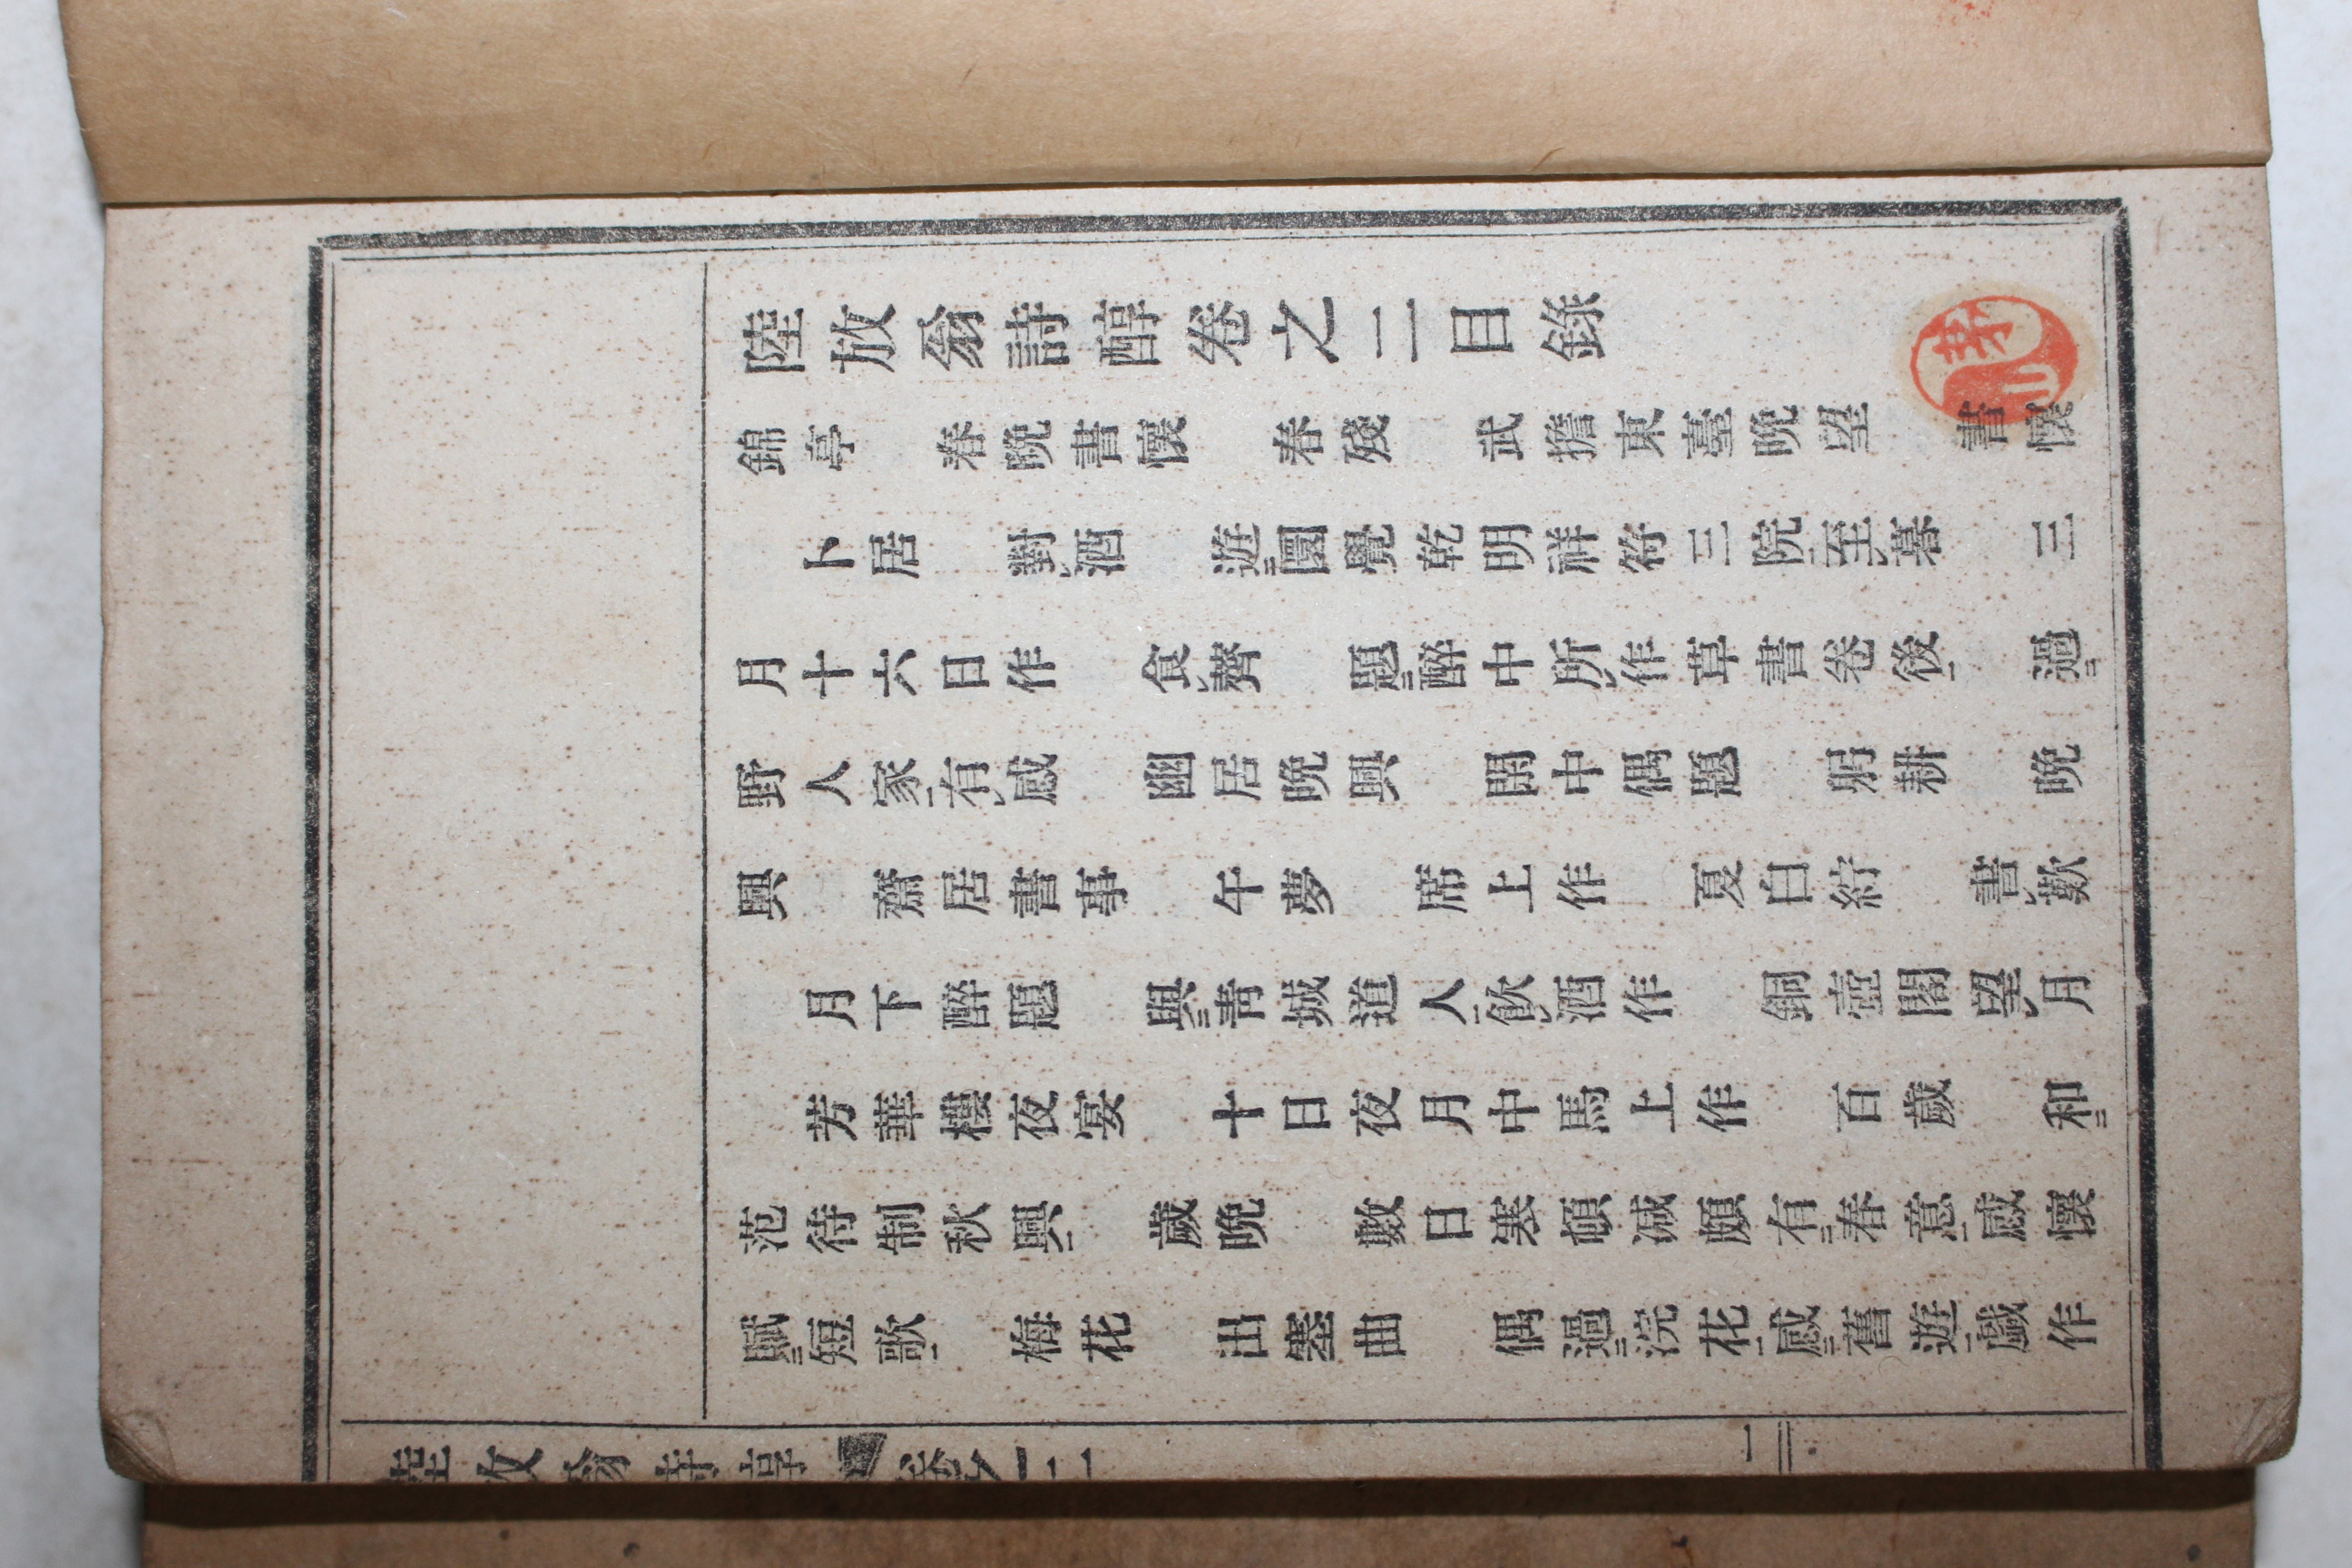 陸放翁詩醇卷之二目錄
錦亭　春晩書懷　春殘　武擔東臺晩望　書懷
卜居　對酒　遊圓覺乾明祥符三院至暮　三
月十六日作　食薺　題醉中所作草書卷後　過
野人家有感　幽居晩興　閑中偶題　躬耕　晩
興　齋居書事　午夢　席上作　夏白紵　書歎
月下醉題　與靑城道人飮酒作　銅壺閣望月
芳華樓夜宴　十日夜月中馬上作　百歲　和
范待制秋興　歲晩　數日寒頓減頗有春意感懷
賦短歌　梅花　出塞曲　偶過浣花感舊遊戲作
陸放翁詩醇　卷之二　一